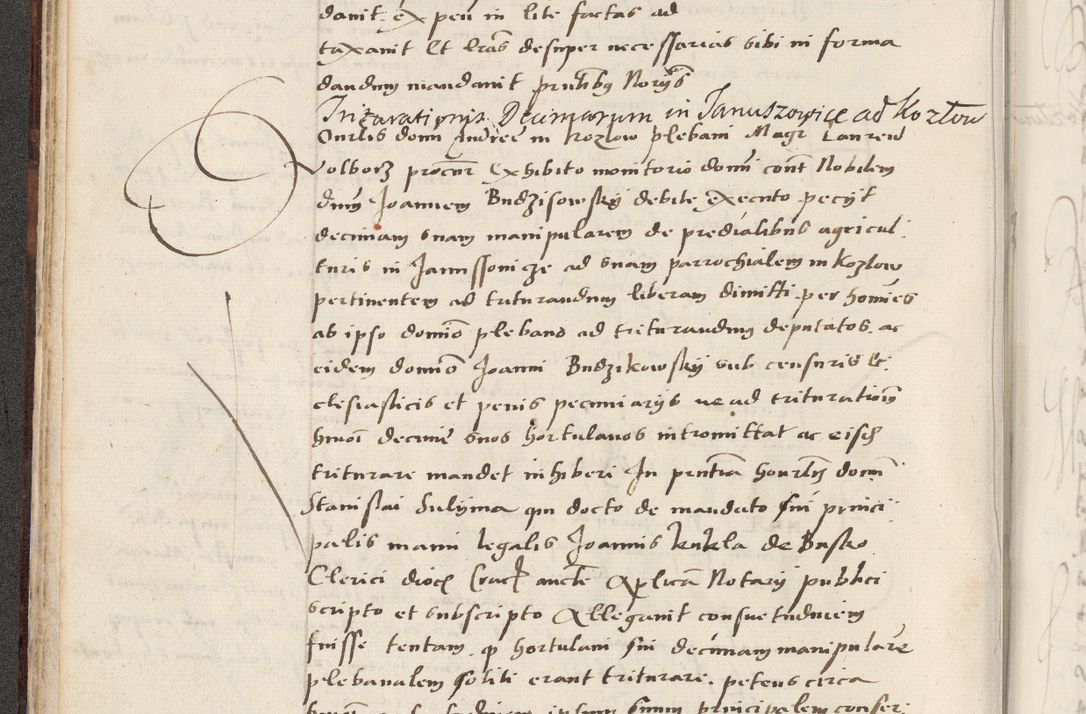 danit. ex peu in lite factas ad
taxanit Et lras desuper necessarias sibi in forma
dandum mandanit pntibus Norijs
Trituratipnis Decimarum in Januszowice ad Kozlow
domi Andree in Kozlow plebani Magr Laurent
Volborz procur Exhibito monitorio domi cont Nobilem
dnum Joannem Budzisowsky debite executo pecijt
decimam suam manipularem de predialibus agricul
turis in Janussonicze ad suam parrochialem in Kozlow
pertinentem ad triturandum liberam dimitti per homies
ab ipso domio plebano ad triturandum deputatos ac
eidem domio Joanni Budzikowsky sub censuris Ec
clesiasticis et penis pecuniarijs ne ad trituration
hmoi decime suos hortulanos intromittat ac eisdem
triturare mandet inhiberi In pntia honrlis domi
Stanislai Sulyma qui docto de mandato sui princi
palis manu legalis Joannis kukla de Busko
Clerici dioc Crac aucte Aplica Notarij publici
scripto et subscripto Alleganit consuetudinem
fuisse tentam q hortulani sui decimam manipulare
plebanalem soliti erant triturare. petens circa
ipsum suum principalem conser